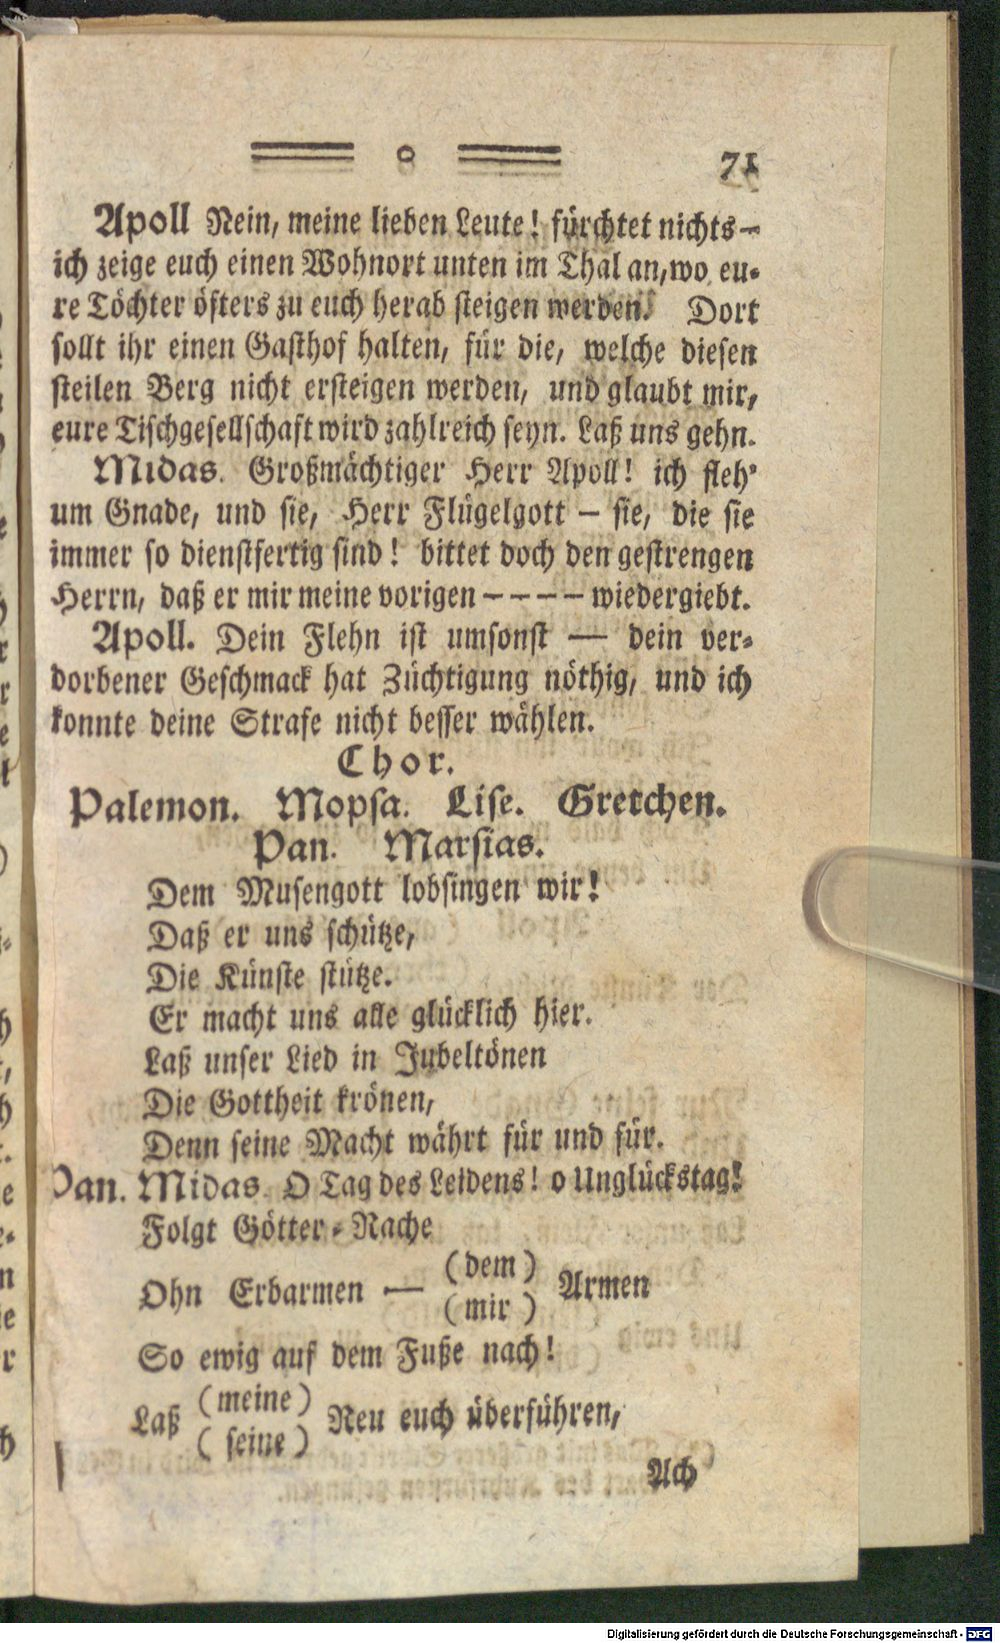 71
Apoll Nein, meine lieben Leute! fürchtet nichts –
ich zeige euch einen Wohnort unten im Thal an, wo eu-
re Töchter öfters zu euch herab steigen werden. Dort
sollt ihr einen Gasthof halten, für die, welche diesen
steilen Berg nicht ersteigen werden, und glaubt mir,
eure Tischgesellschaft wird zahlreich seyn. Laß uns gehn.
Midas. Großmächtiger Herr Apoll! ich fleh'
um Gnade, und sie, Herr Flügelgott – sie, die sie
immer so dienstfertig sind! bittet doch den gestrengen
Herrn, daß er mir meine vorigen – – – – wiedergiebt.
Apoll. Dein Flehn ist umsonst — dein ver-
dorbener Geschmack hat Züchtigung nöthig, und ich
konnte deine Strafe nicht besser wählen.
Chor.
Palemon. Mopsa. Lise. Gretchen.
Pan. Marsias.
Dem Musengott lobsingen wir!
Daß er uns schütze,
Die Künste stütze.
Er macht uns alle glücklich hier.
Laß unser Lied in Jubeltönen
Die Gottheit krönen,
Denn seine Macht währt für und für.
Pan. Midas. O Tag des Leidens! o Unglückstag!
Folgt Götter-Rache
Ohn Erbarmen — (dem) (mir) Armen
So ewig auf dem Fuße nach!
Laß (meine) (seine) Reu euch überführen,
Ach
Digitalisierung gefördert durch die Deutsche Forschungsgemeinschaft - DFG